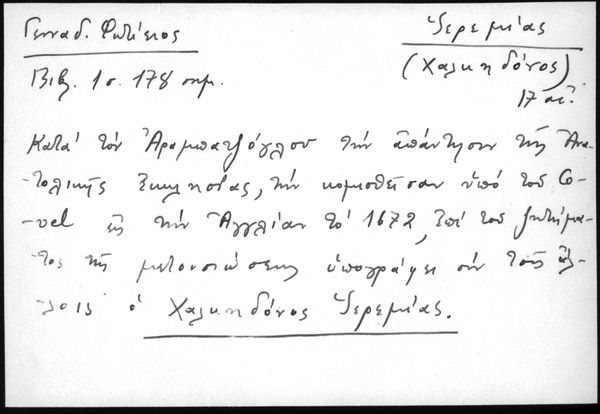 Γενναδ. Φωτίειος
Ἱερεμίας
Βιβ. 1 σ. 178 σημ.
(Χαλκηδόνος)
17 αἰ.
Κατὰ τὸν Ἀραμπατζόγλου τὴν ἀπάντησιν τῆς Ἀνα-
-τολικῆς Ἐκκλησίας, τὴν κομισθεῖσαν ὑπὸ τοῦ Co-
-vel εἰς τὴν Ἀγγλίαν τὸ 1672, ἐπὶ τοῦ ζητήμα-
-τος τῆς μετουσιώσεως ὑπογράφει σὺν τοῖς ἄλ-
-λοις ὁ Χαλκηδόνος Ἱερεμίας.